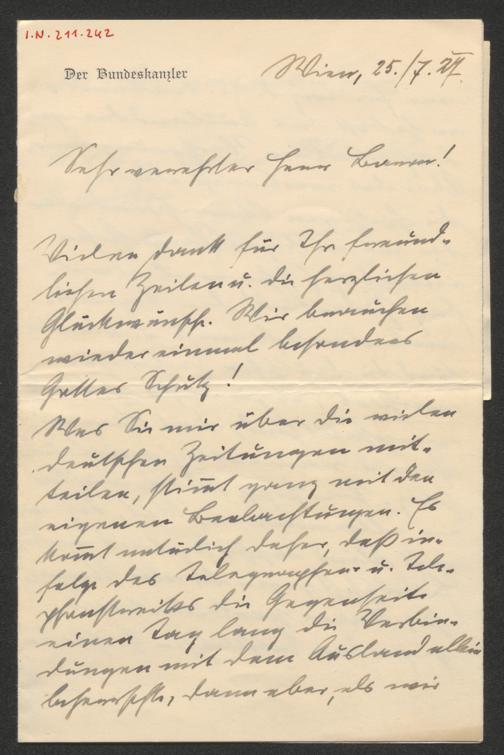 I.N. 211.242
Der Bundeskanzler
Wien, 25./7. 27.
Sehr verehrter Herr Baron!
Vielen Dank für Ihre freund-
lichen Zeilen u. die herzlichen
Glückwünsche. Wir brauchen
wieder einmal besonders
Gottes Schutz!
Was Sie mir über die vielen
deutschen Zeitungen mit-
teilen, stimmt ganz mit den
eigenen Beobachtungen. Es
kommt natürlich daher, daß in-
folge des Telegraphen- u. Tele-
phonstreiks die Gegenseite
einen Tag lang die Verbin-
dungen mit dem Ausland allein
beherrschte, dann aber, als wir